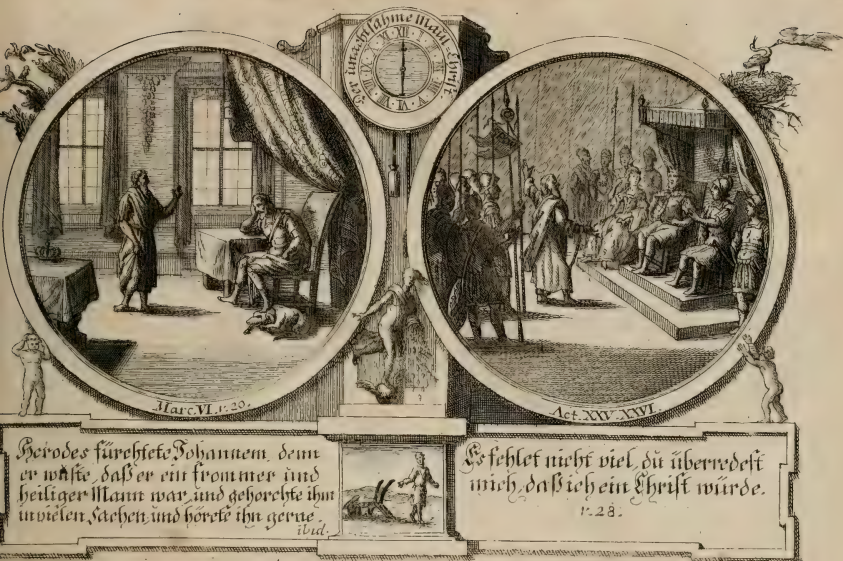 Der unachtsahme Maul-Christ.
XII
VI
Marc. VI. v. 20.
Act. XXV. XXVI.
Herodes fürchtete Johannem, denn
er wuste, daß er ein frommer und
heiliger Mann war, und gehorchte ihm
in vielen Sachen, und hörete ihn gerne.
ibid.
Es fehlet nicht viel, du überredest
mich, daß ich ein Christ würde.
v. 28.